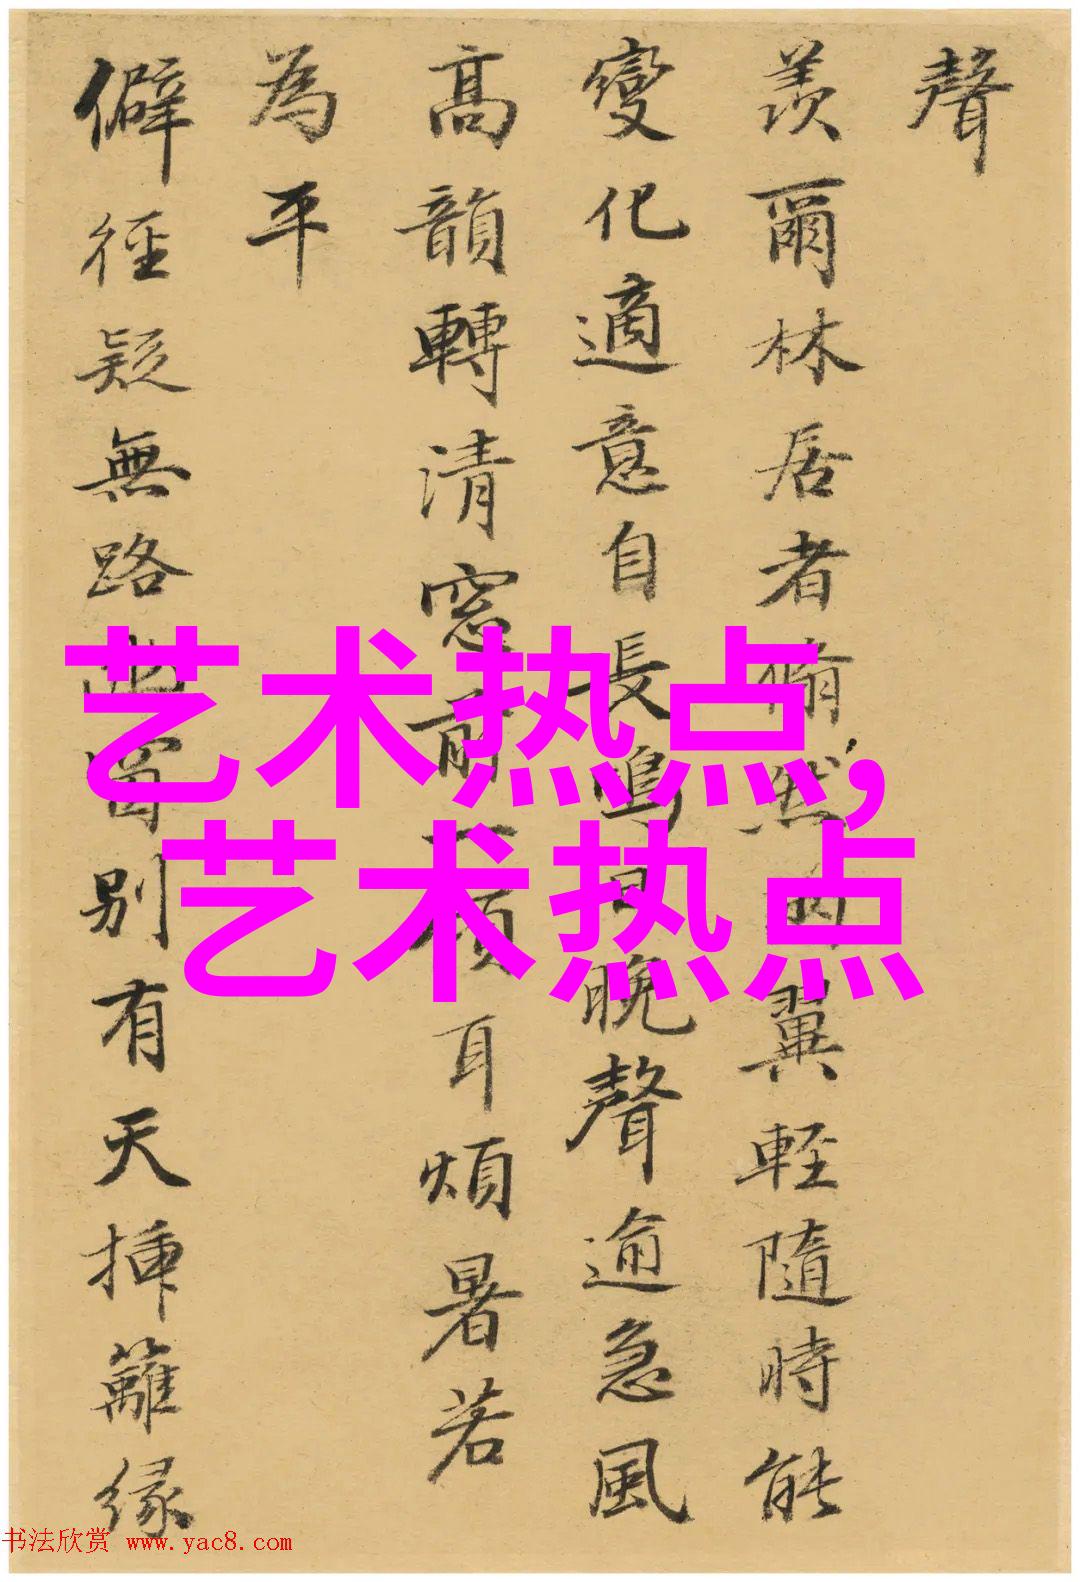 聲
羨爾林居者翛然兩翼輕隨時能
變化適意自長鳴日晚聲逾急風
高韻轉清窓前一傾耳煩暑若
為平
僻徑疑無路 別有天揷籬緣
艺术热点,
艺术热点
书法欣赏 www.yac8.com